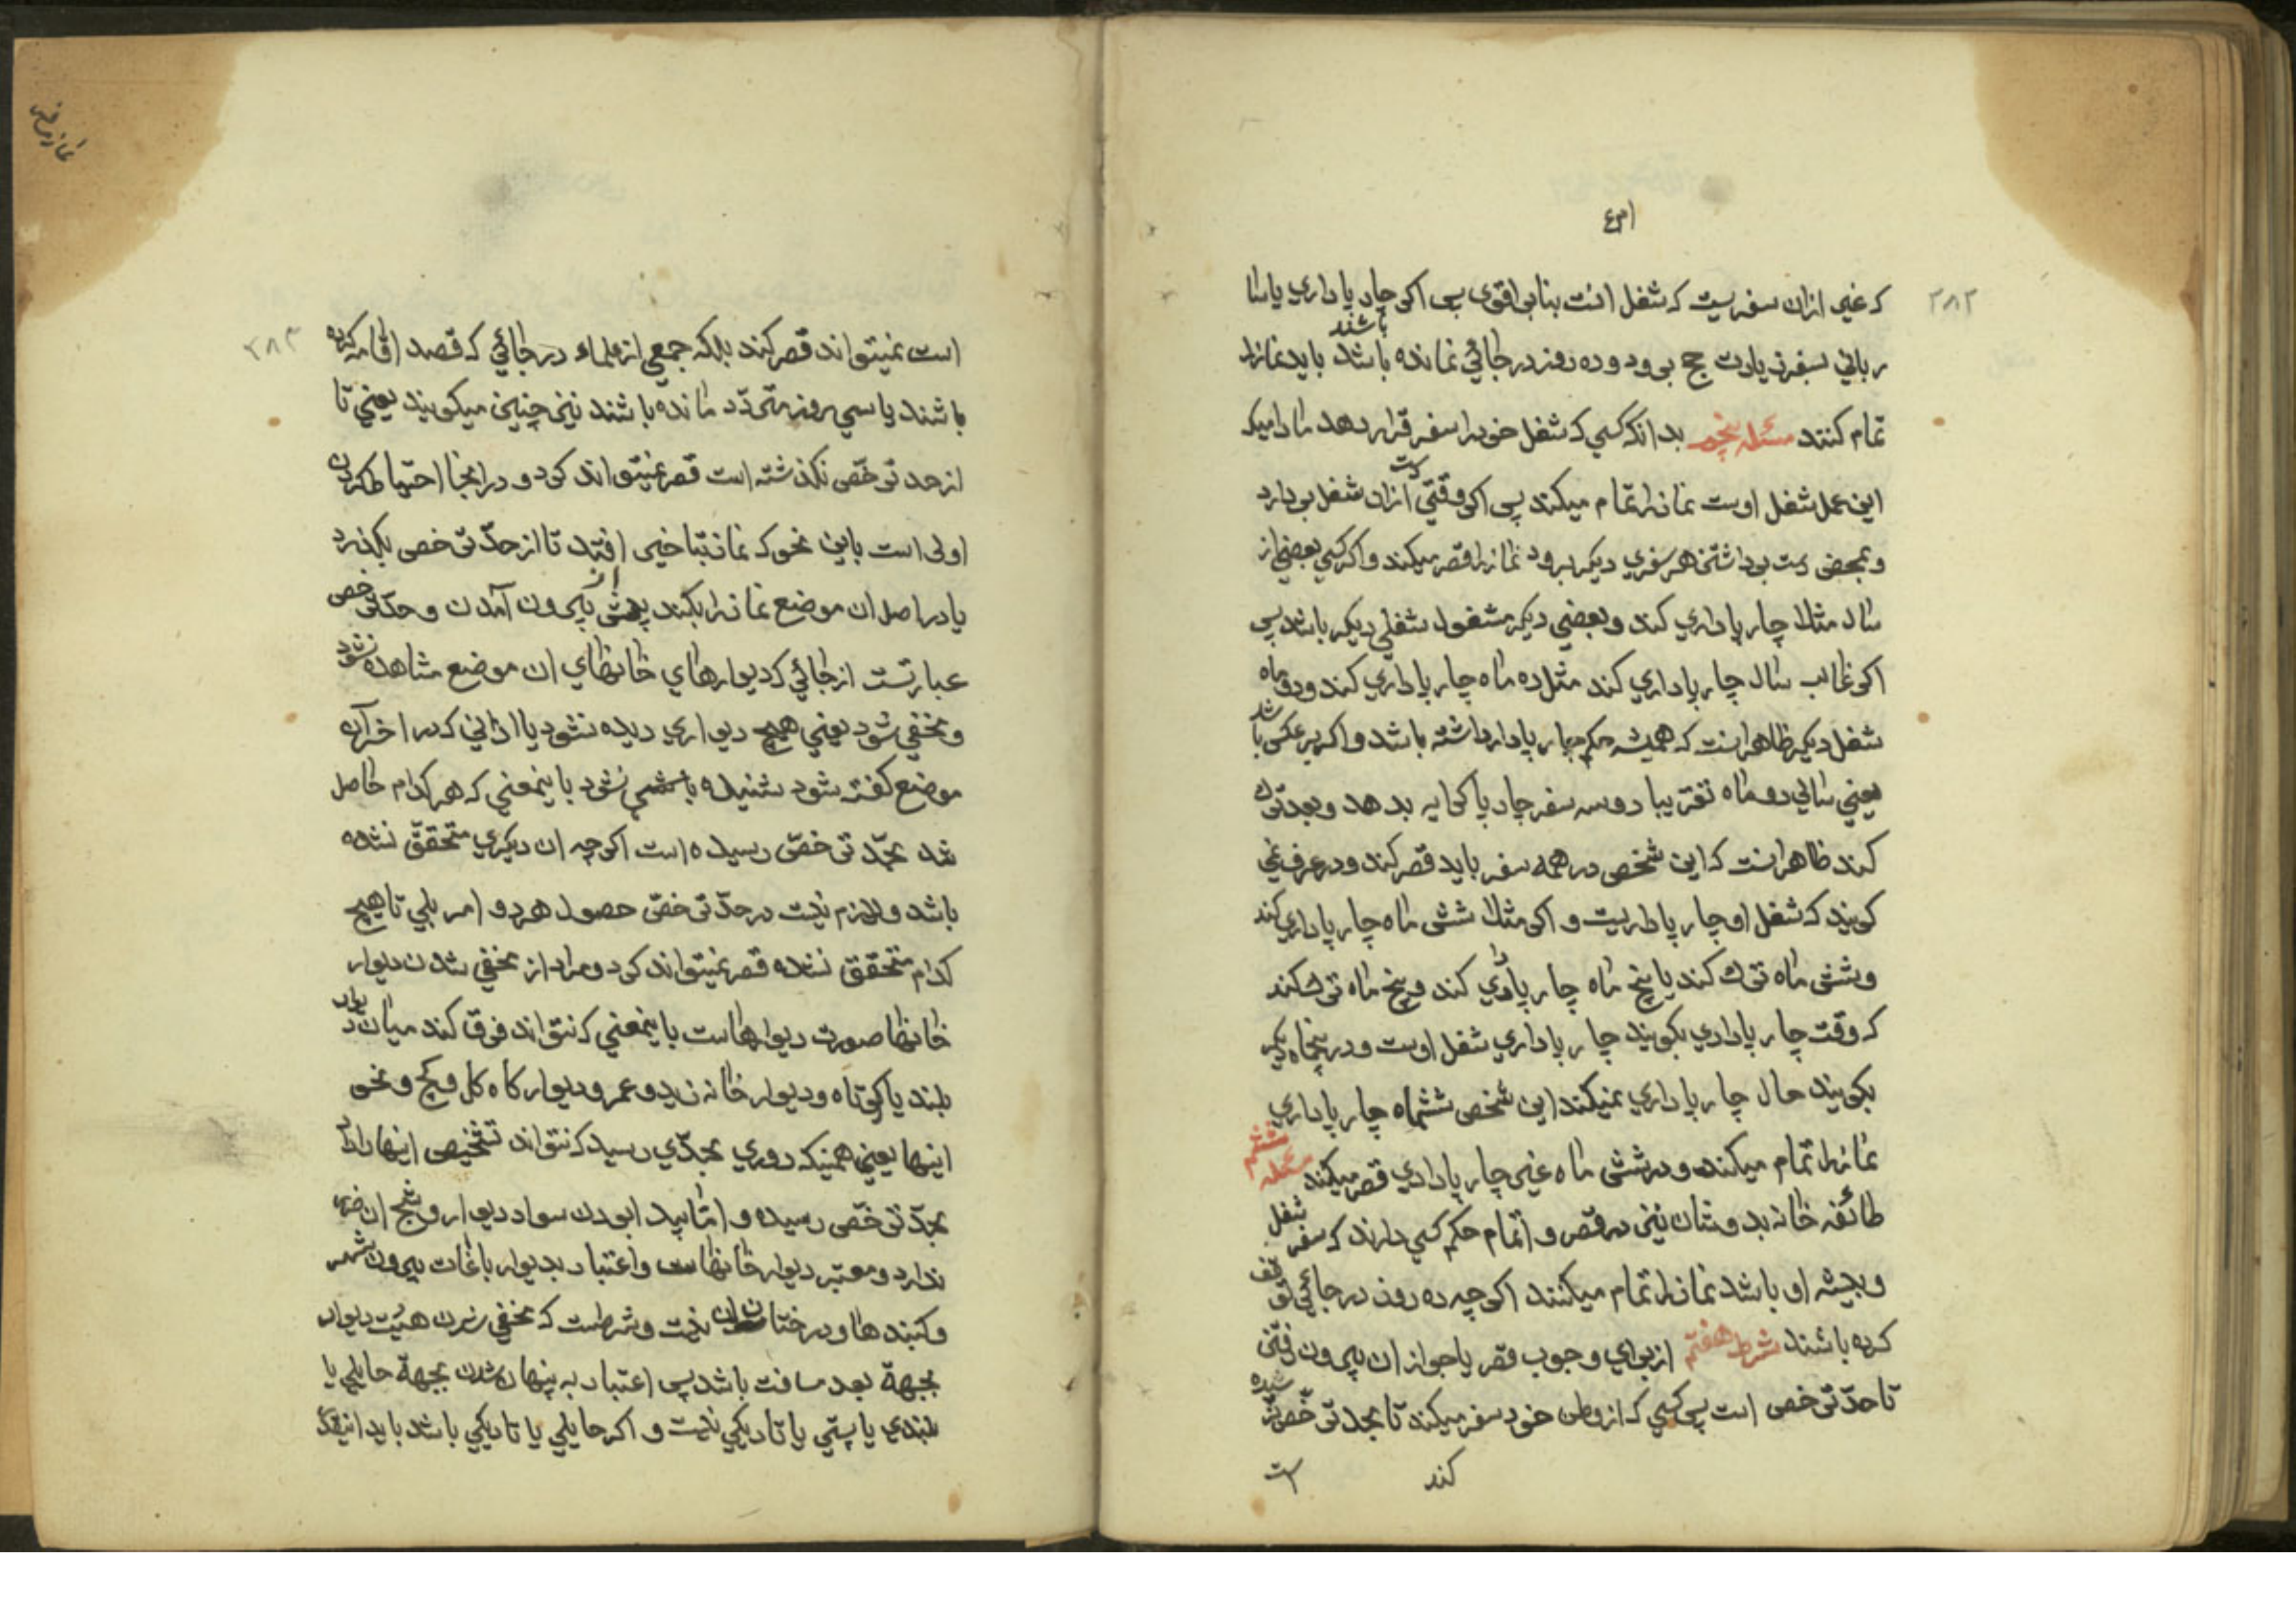 ۲۸۲
که غیر ازان سفریست که شغل انست بنابر اقوی پس اکر چارپاداری یا سا
ربانی بسفر زیارت حج برود و ده روز در جائی نمانده باشد باشند باید نمازرا
تمام کنند مسئله پنجم بدانکه کسی که شغل خودرا سفر قرار دهد مادامیکه
این عمل شغل اوست نمازرا تمام میکند پس اکر وقتی دست ازان شغل بردارد
و بمحض دست برداشتن هر سفری دیکر برود نمازرا قصر میکند و اکر کسی بعضی از
سال مثلا چارپاداری کند و بعضی دیکر مشغول شغلی دیکر باشد پس
اکر غالب سال چارپاداری کند مثل ده ماه چارپاداری کند و دو ماه
شغل دیکر ظاهر انست که همیشه حکم چارپادار داشته باشد و اکر بر عکس باشد
یعنی سالی دو ماه تقریبا دو سه سفر چارپا کرایه بدهد و بعد ترک
کند ظاهر انست که این شخص در همه سفر باید قصر کند و در عرف نمی
کویند که شغل او چارپاداریست و اکر مثلا شش ماه چارپاداری کند
و شش ماه ترک کند یا پنج ماه چارپاداری کند و پنج ماه ترک کند
که وقت چارپاداری بکویند چارپاداری شغل اوست و در پنجماه دیکر
بکویند حال چارپاداری نمیکند این شخص ششماه چارپاداری
نمازرا تمام میکند و در شش ماه غیر چارپاداری قصر میکند مسئله ششم
طائفه خانه بدوشان نیز در قصر و اتمام حکم کسی دارند که سفر شغل
و پیشه او باشد نمازرا تمام میکنند اکر چه ده روز در جائی توقف
کرده باشند شرط هفتم از برای وجوب قصر یا جواز ان بیرون رفتن
تا حد ترخص است پس کسی که از وطن خود سفر میکند تا بحد ترخص نرسیده
کند است
۲۸۳
است نمیتواند قصر کند بلکه جمعی از علماء در جائی که قصد اقامه کرده
باشند یا سی روز متردد مانده باشند نیز چنین میکویند یعنی تا
از حد ترخص نکذشته است قصر نمیتواند کرد و در اینجا احتیاط کردن
اولی است باین نحو که نماز بتاخیر افتد تا از حد ترخص بکذرد
یا در اصل ان موضع نمازرا بکند پیش از بیرون آمدن و حد ترخص
عبارتست از جائی که دیوارهای خانهای ان موضع مشاهده نشود
و مخفی شود یعنی هیچ دیواری دیده نشود یا اذانی که در اخر آن
موضع کفته شود شنیده نشود باینمعنی که هر کدام حاصل
شد بحد ترخص رسیده است اکر چه ان دیکری متحقق نشده
باشد و لازم نیست در حد ترخص حصول هر دو امر بلی تا هیچ
کدام متحقق نشده قصر نمیتواند کرد و مراد از مخفی شدن دیوار
خانها صورت دیوارهاست باینمعنی که نتواند فرق کند میان دیوار
بلند یا کوتاه و دیوار خانه زید و عمر و دیوار کاه کل و کچ و نحو
اینها یعنی همینکه دوری بحدی رسید که نتواند تشخیص اینها داد
بحد ترخص رسیده و اما پیدا بودن سواد دیوار و شبح ان ضرر
ندارد و معتبر دیوار خانهاست و اعتبار بدیوار باغات بیرون شهر
و کنبدها و درختان ان نیست و شرطست که مخفی شدن هیئت دیوار
بجهة بعد مسافت باشد پس اعتبار به پنهان شدن بجهة حایلی یا
بلندی یا پستی یا تاریکی نیست و اکر حایلی یا تاریکی باشد باید انیقدر